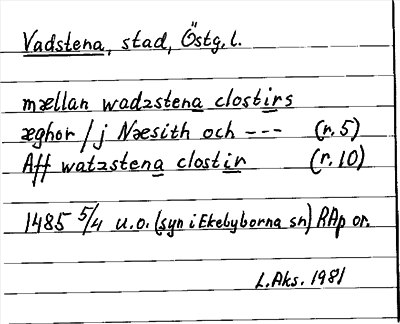 Vadstena, stad, Östg. l.
mællan wadzstena clostirs
æghor / j Næsith och --- (r. 5)
Aff watzstena clostir (r. 10)
1485 5/4 u.o. (syn i Ekebyborna sn) RAp or.
L. Aks. 1981